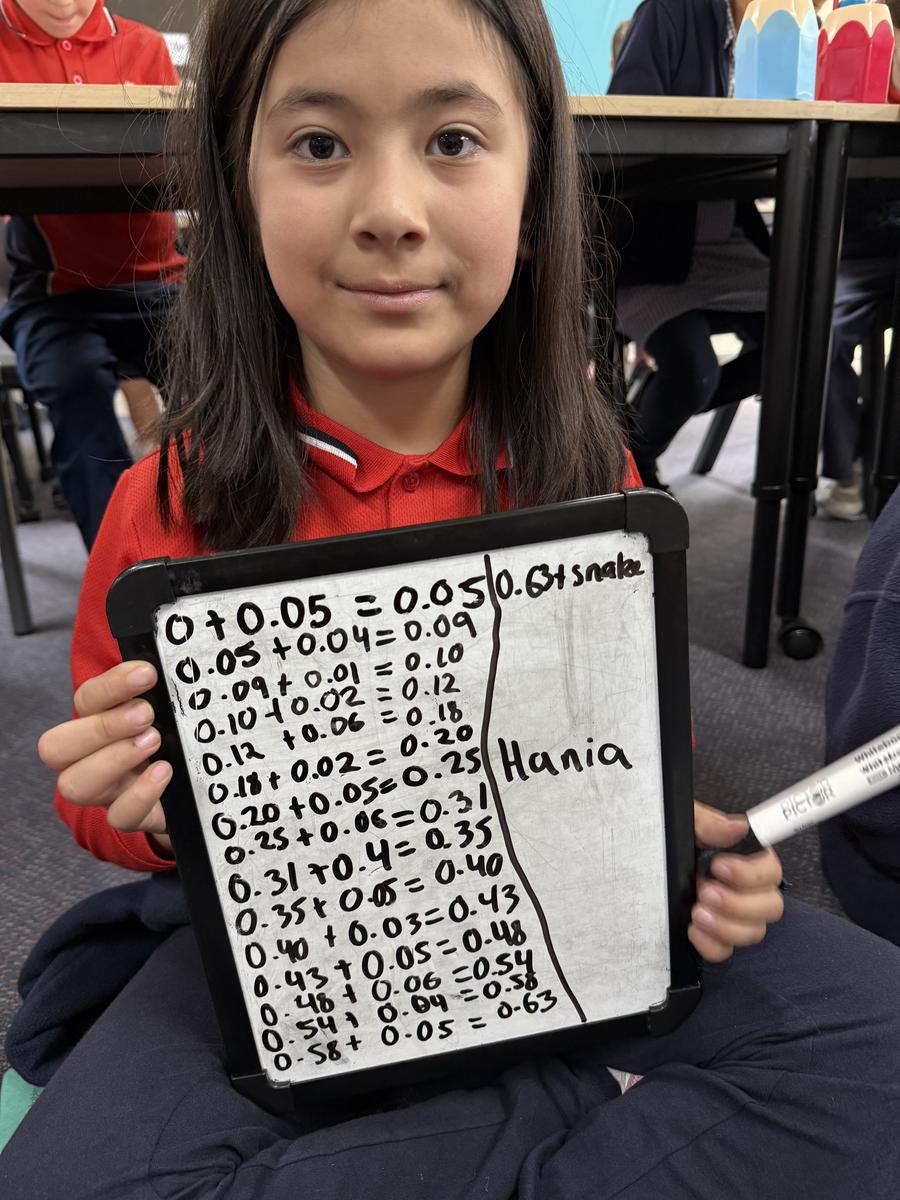 0 + 0.05 = 0.05
0.05 + 0.04 = 0.09
0.09 + 0.01 = 0.10
0.10 + 0.02 = 0.12
0.12 + 0.06 = 0.18
0.18 + 0.02 = 0.20
0.20 + 0.05 = 0.25
0.25 + 0.06 = 0.31
0.31 + 0.4 = 0.35
0.35 + 0.05 = 0.40
0.40 + 0.03 = 0.43
0.43 + 0.05 = 0.48
0.48 + 0.06 = 0.54
0.54 + 0.04 = 0.58
0.58 + 0.05 = 0.63
0.63 + snake
Hania